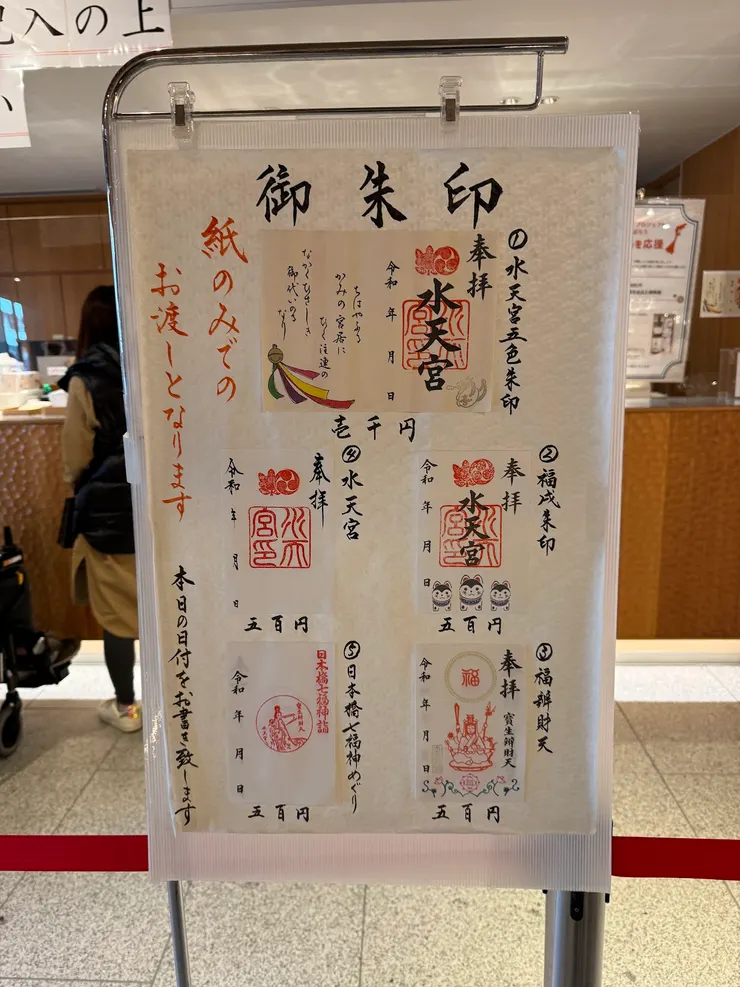 記入の上
御朱印
紙のみでの
お渡しとなります
本日の日付をお書き致します
①水天宮五色朱印
奉拝
水天宮
令和 年 月 日
ちはやふる
かみの宮居に
ひく注連の
なかくひさしき
御代いのる
なり
壱千円
②福戌朱印
奉拝
水天宮
令和 年 月 日
五百円
③福辨財天
奉拝
寳生辨財天
福
令和 年 月 日
五百円
④水天宮
奉拝
令和 年 月 日
五百円
⑤日本橋七福神めぐり
日本橋七福神詣
令和 年 月 日
五百円
を応援